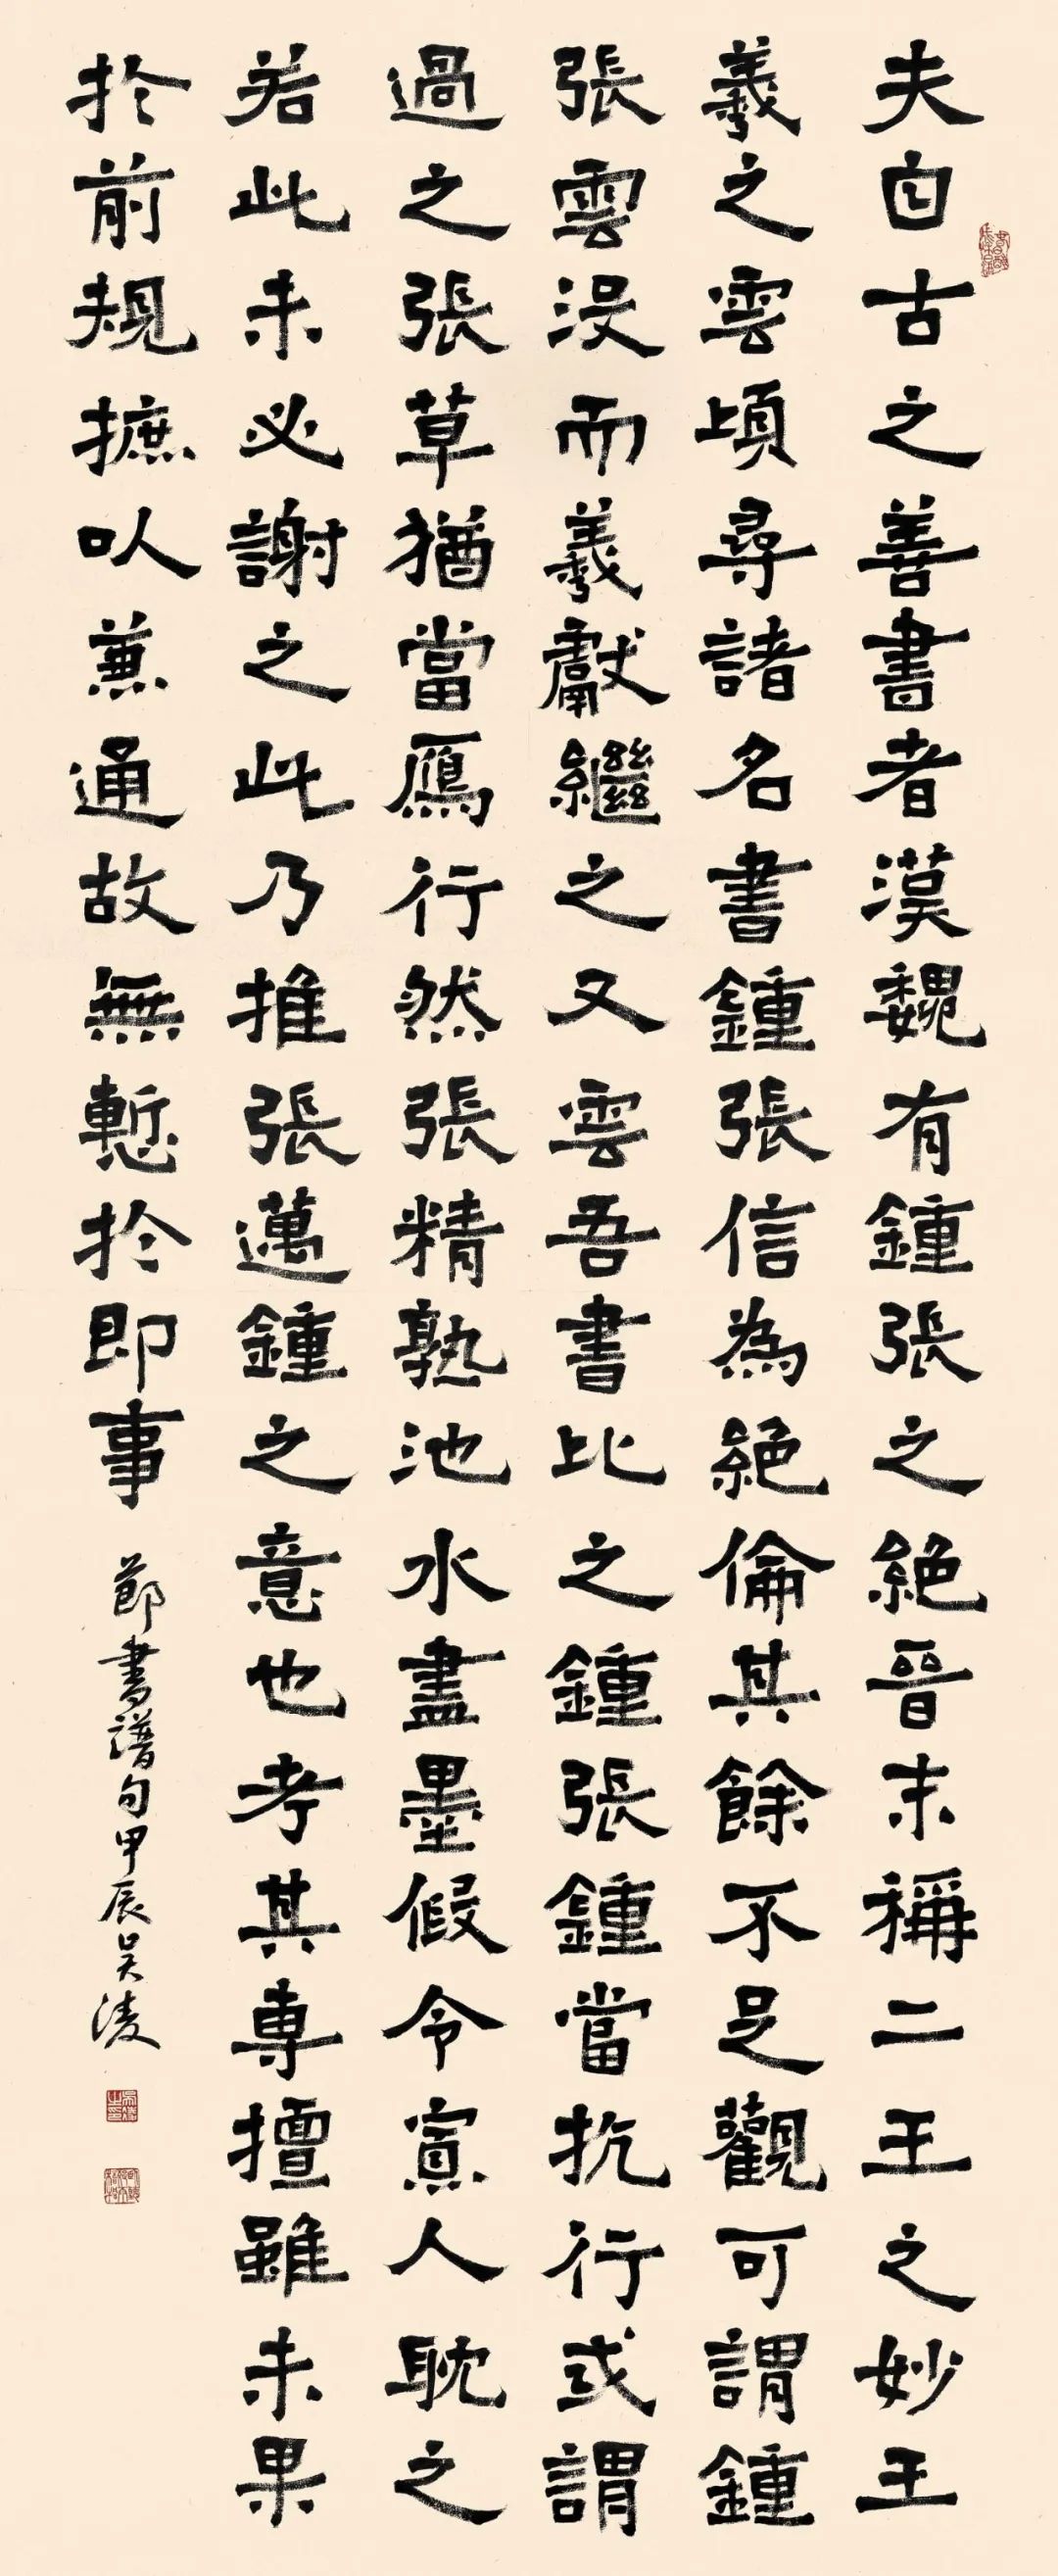 夫自古之善書者漢魏有鍾張之絕晉末稱二王之妙王
羲之雲頃尋諸名書鍾張信為絕倫其餘不足觀可謂鍾
張雲沒而羲獻繼之又雲吾書比之鍾張鍾當抗行或謂
過之張草猶當鴈行然張精熟池水盡墨假令寘人耽之
若此未必謝之此乃推張邁鍾之意也考其專擅雖未果
於前規摭以兼通故無慙於即事
節書譜句甲辰吴淩